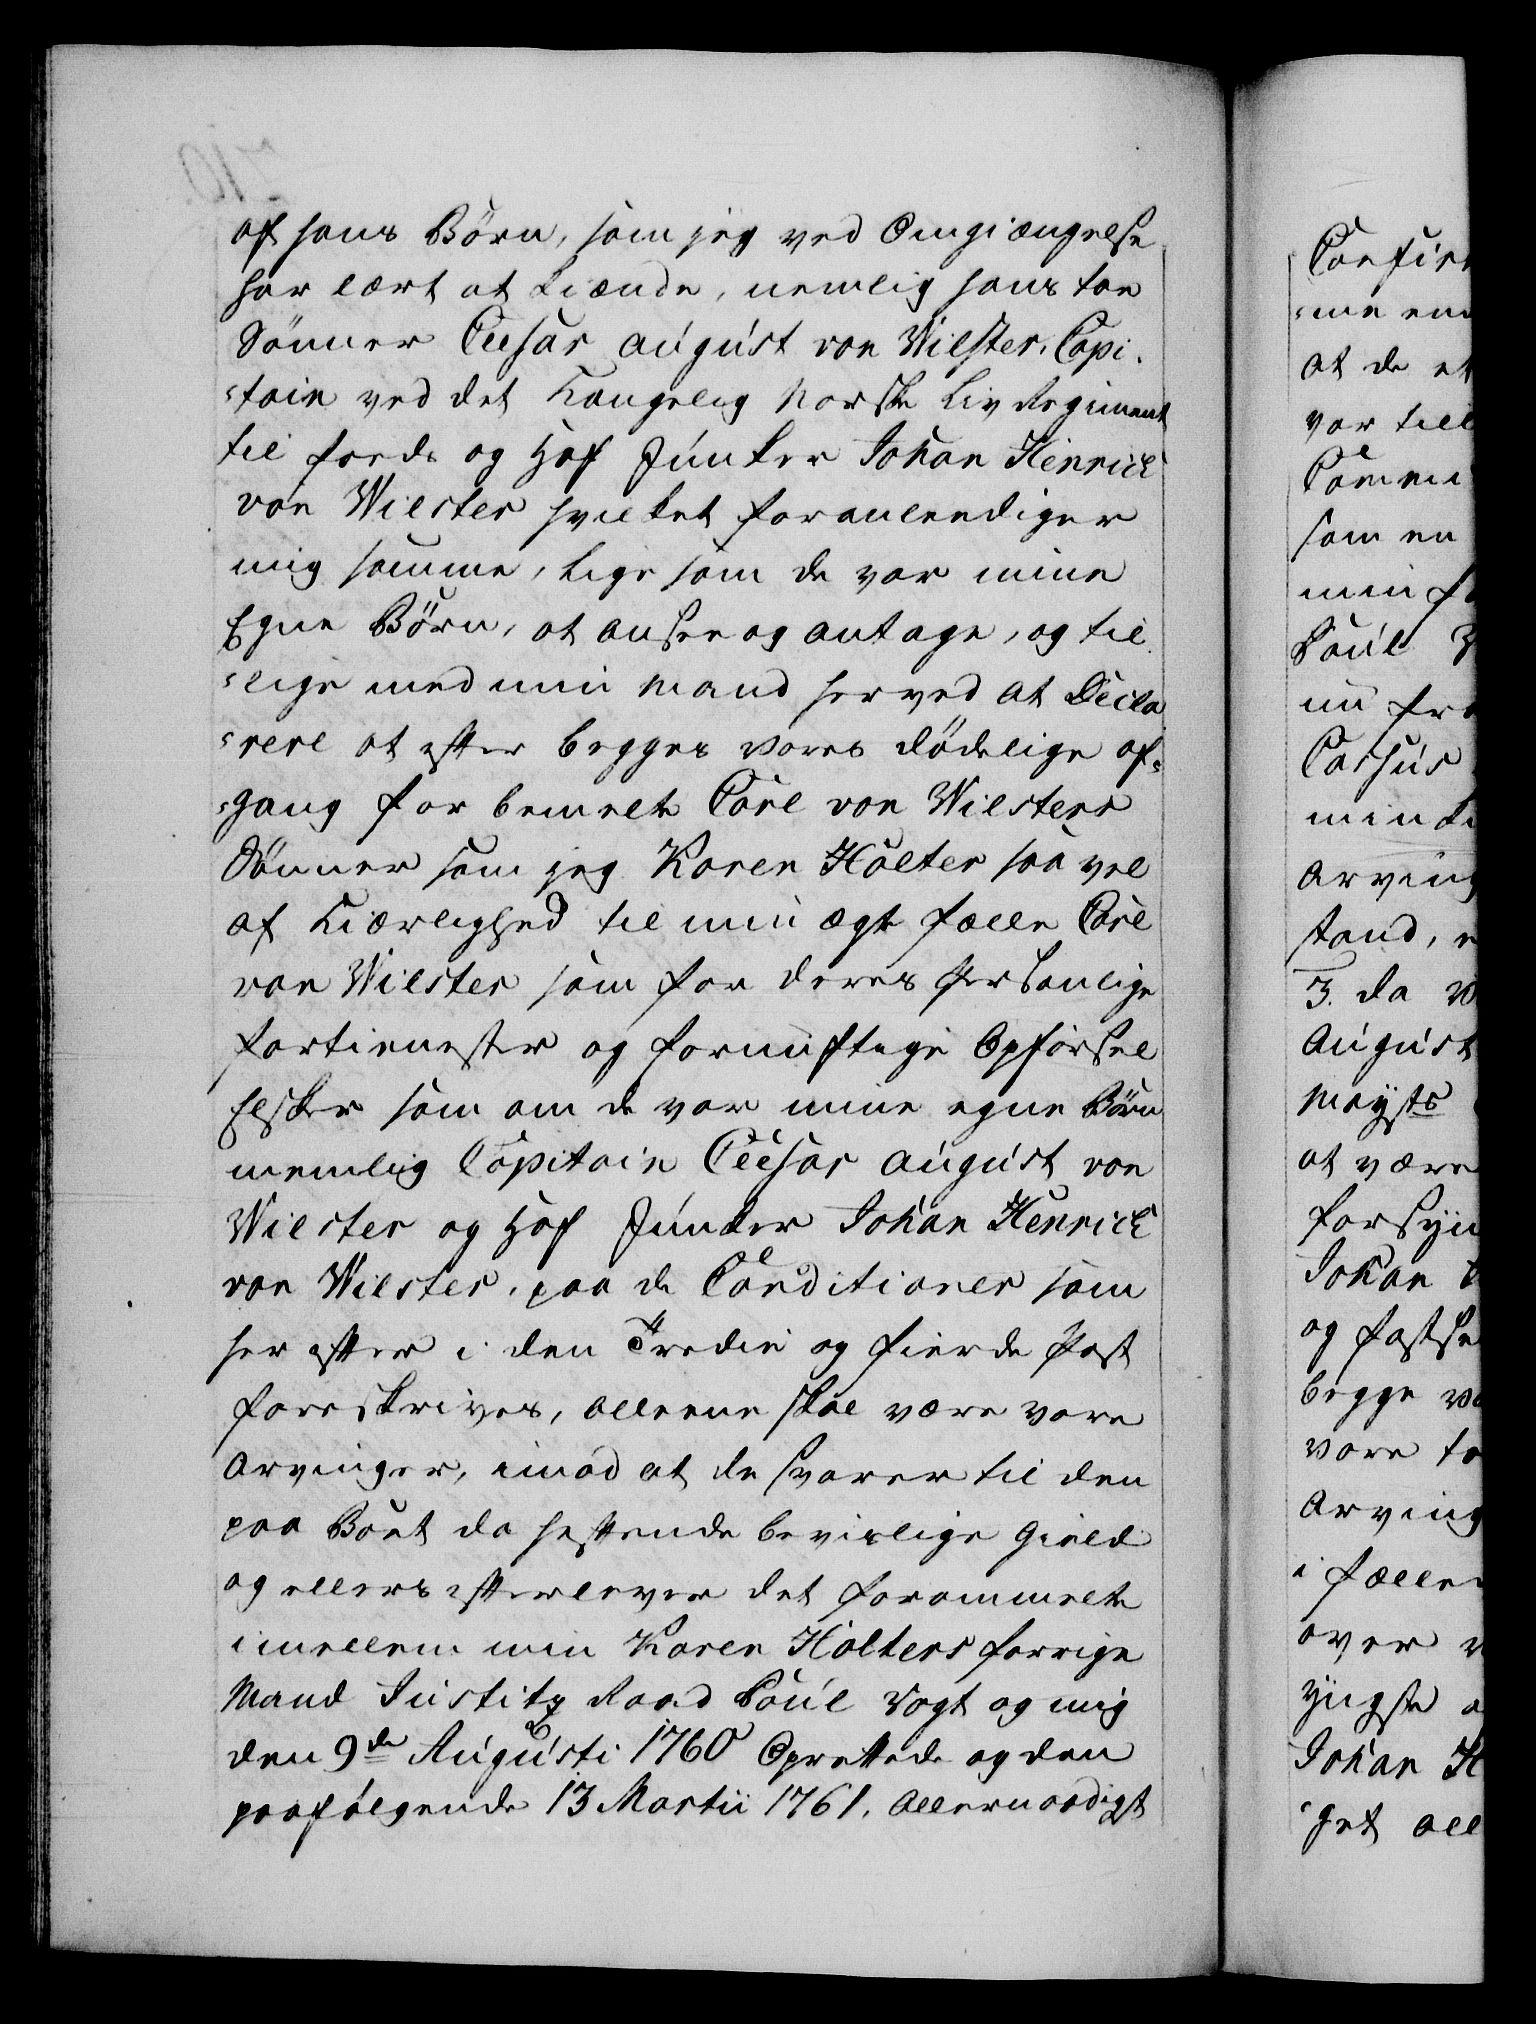 af hans Börn, som jeg ved Omgiængelse
har lært at kiænde, nemlig hans toe
Sönner Cæsar August von Wilster, Capi-
-tain ved det Kongelig Norske Liv Regiment
til foeds og Hof Junker Johan Henrich
von Wilster hvilket foranlendiger
mig samme, lige som de var mine
Egne Börn, at ansee og antage, og til
-lige med min Mand herved at Decla
-rere at efter begges vores dödelige af-
-gang for bemelte Carl von Wilsters
Sönner som jeg Karen Holter saa vel
af Kiærlighed til min ægte fælle Carl
von Wilster som for deres Personlige
fortienester og fornuftige Opförsel
Elsker som om de var mine egne Börn
nemlig Capitain Cæsar August von
Wilster og Hof Junker Johan Henrich
von Wilster, paa de Conditioner som
her efter i den Tredie og fierde Post
foreskrives, alleene skal være vore
Arvinger, imod at de svarer til den
paa Boet da heftende bevislige Gield
og ellers efterlever det forommelte
imellem min Karen Holters forrige
Mand Justitz Raad Poul Vogt og mig
den 9de Augusti 1760 Oprettede og den
paafölgende 13 Martii 1761. Allernaadigst
Confir
-me en
at de et
var till
Commi
som en
min f
Poul V
nu fr
Cæsar
min k
Arving
stand, e
3. da V
August
Mayts
at være
forsyn
Johan
og fastse
begge vo
vore to
Arving
i fælle
over v
yngste
Johan H
get all